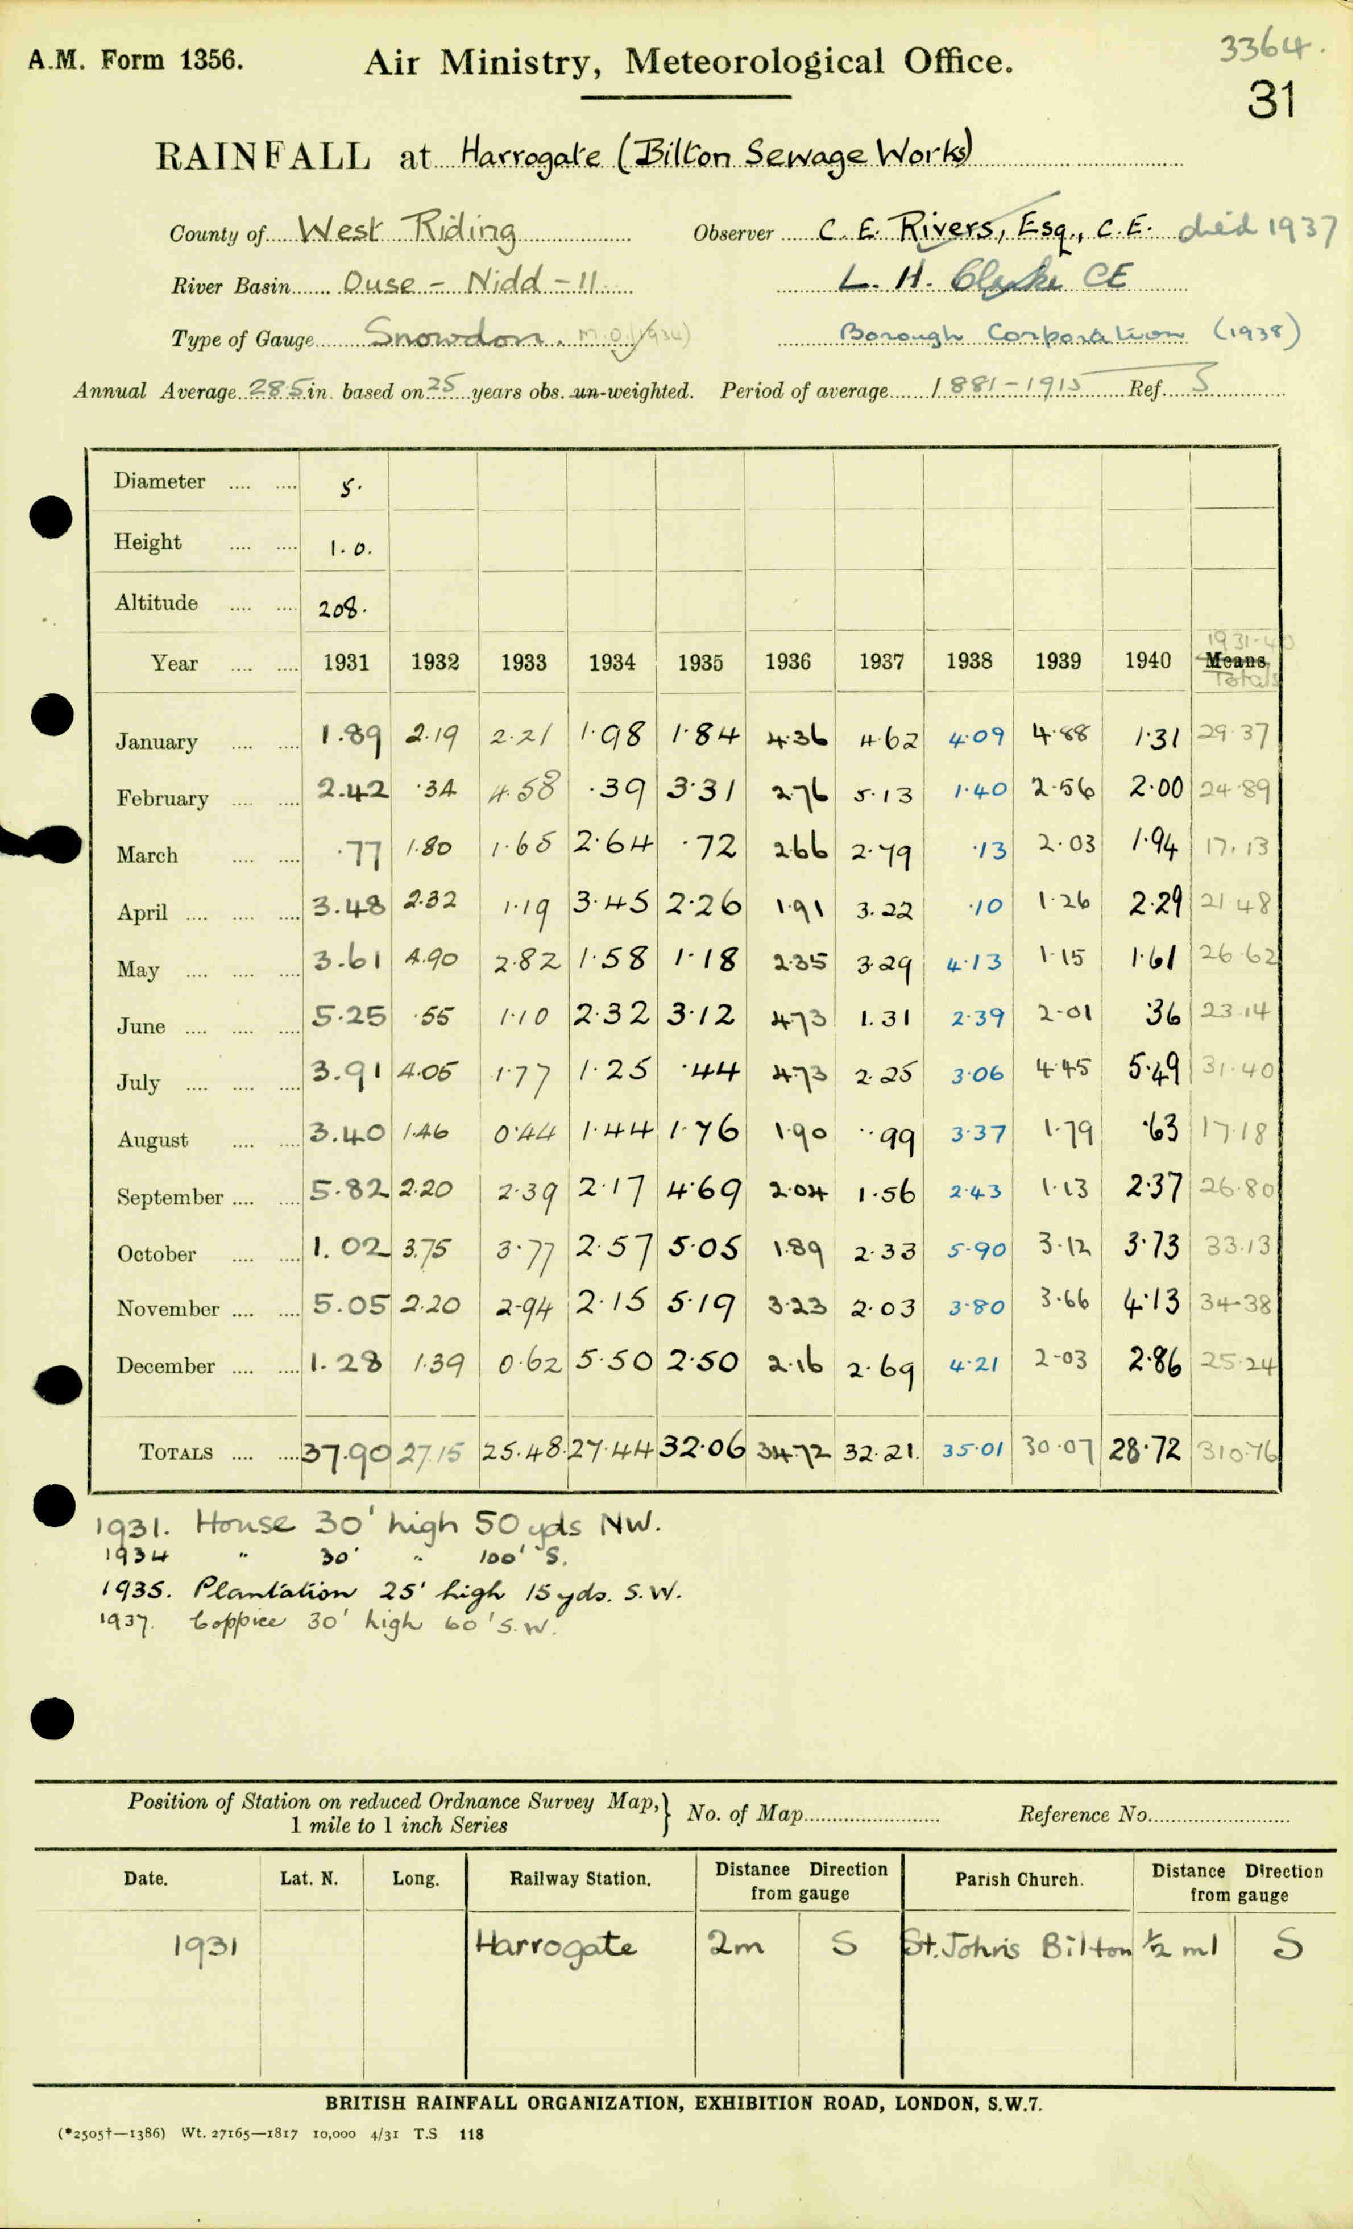 3364.
A.M. Form 1356. Air Ministry, Meteorological Office.
31
RAINFALL at Harrogate (Bilton Sewage Works)
County of West Riding Observer C. E. Rivers, Esq., C.E. died 1937
River Basin Ouse - Nidd - 11 L. H. Clarke CE
Type of Gauge Snowdon. M.O. (1934) Borough Corporation (1938)
Annual Average 28.5 in. based on 25 years obs. un-weighted. Period of average 1881-1915 Ref. S
Diameter .... .... 5.
Height .... .... 1.0.
Altitude .... .... 208.
1931-40
Year .... .... 1931 1932 1933 1934 1935 1936 1937 1938 1939 1940 Means
Totals
January .... .... 1.89 2.19 2.21 1.98 1.84 4.36 4.62 4.09 4.88 1.31 29.37
February .... .... 2.42 .34 4.58 .39 3.31 2.76 5.13 1.40 2.56 2.00 24.89
March .... .... .77 1.80 1.65 2.64 .72 2.66 2.79 .13 2.03 1.94 17.13
April .... .... .... 3.48 2.32 1.19 3.45 2.26 1.91 3.22 .10 1.26 2.29 21.48
May .... .... .... 3.61 4.90 2.82 1.58 1.18 2.35 3.29 4.13 1.15 1.61 26.62
June .... .... .... 5.25 .55 1.10 2.32 3.12 4.73 1.31 2.39 2.01 .36 23.14
July .... .... .... 3.91 4.05 1.77 1.25 .44 4.73 2.25 3.06 4.45 5.49 31.40
August .... .... 3.40 1.46 0.44 1.44 1.76 1.90 .99 3.37 1.79 .63 17.18
September .... .... 5.82 2.20 2.39 2.17 4.69 2.04 1.56 2.43 1.13 2.37 26.80
October .... .... 1.02 3.75 3.77 2.57 5.05 1.89 2.33 5.90 3.12 3.73 33.13
November .... .... 5.05 2.20 2.94 2.15 5.19 3.23 2.03 3.80 3.66 4.13 34.38
December .... .... 1.28 1.39 0.62 5.50 2.50 2.16 2.69 4.21 2.03 2.86 25.24
TOTALS .... .... 37.90 27.15 25.48 27.44 32.06 34.72 32.21 35.01 30.07 28.72 310.76
1931. House 30' high 50 yds NW.
1934 " 30' " 100' S.
1935. Plantation 25' high 15 yds. S.W.
1937. Coppice 30' high 60' S.W.
Position of Station on reduced Ordnance Survey Map, } No. of Map Reference No.
1 mile to 1 inch Series
Date. Lat. N. Long. Railway Station. Distance Direction from gauge Parish Church. Distance Direction from gauge
1931 Harrogate 2m S St. John's Bilton ½ ml S
BRITISH RAINFALL ORGANIZATION, EXHIBITION ROAD, LONDON, S.W.7.
(*2505†—1386) Wt. 27165—1817 10,000 4/31 T.S 118